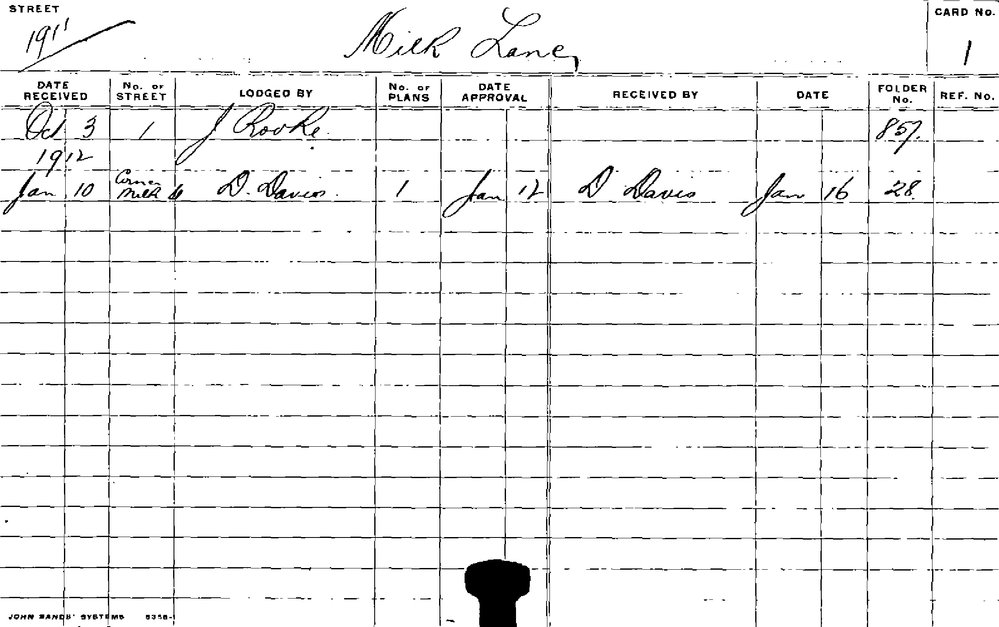 STREET
1911
Milk Lane,
CARD No.
1
DATE RECEIVED No. OF STREET LODGED BY No. OF PLANS DATE APPROVAL RECEIVED BY DATE FOLDER No. REF. No.
Oct 3 1 J Rooke 857
1912
Jan 10 Corner Milk D. Davies 1 Jan 12 D Davis Jan 16 28
JOHN SANDS' SYSTEMS